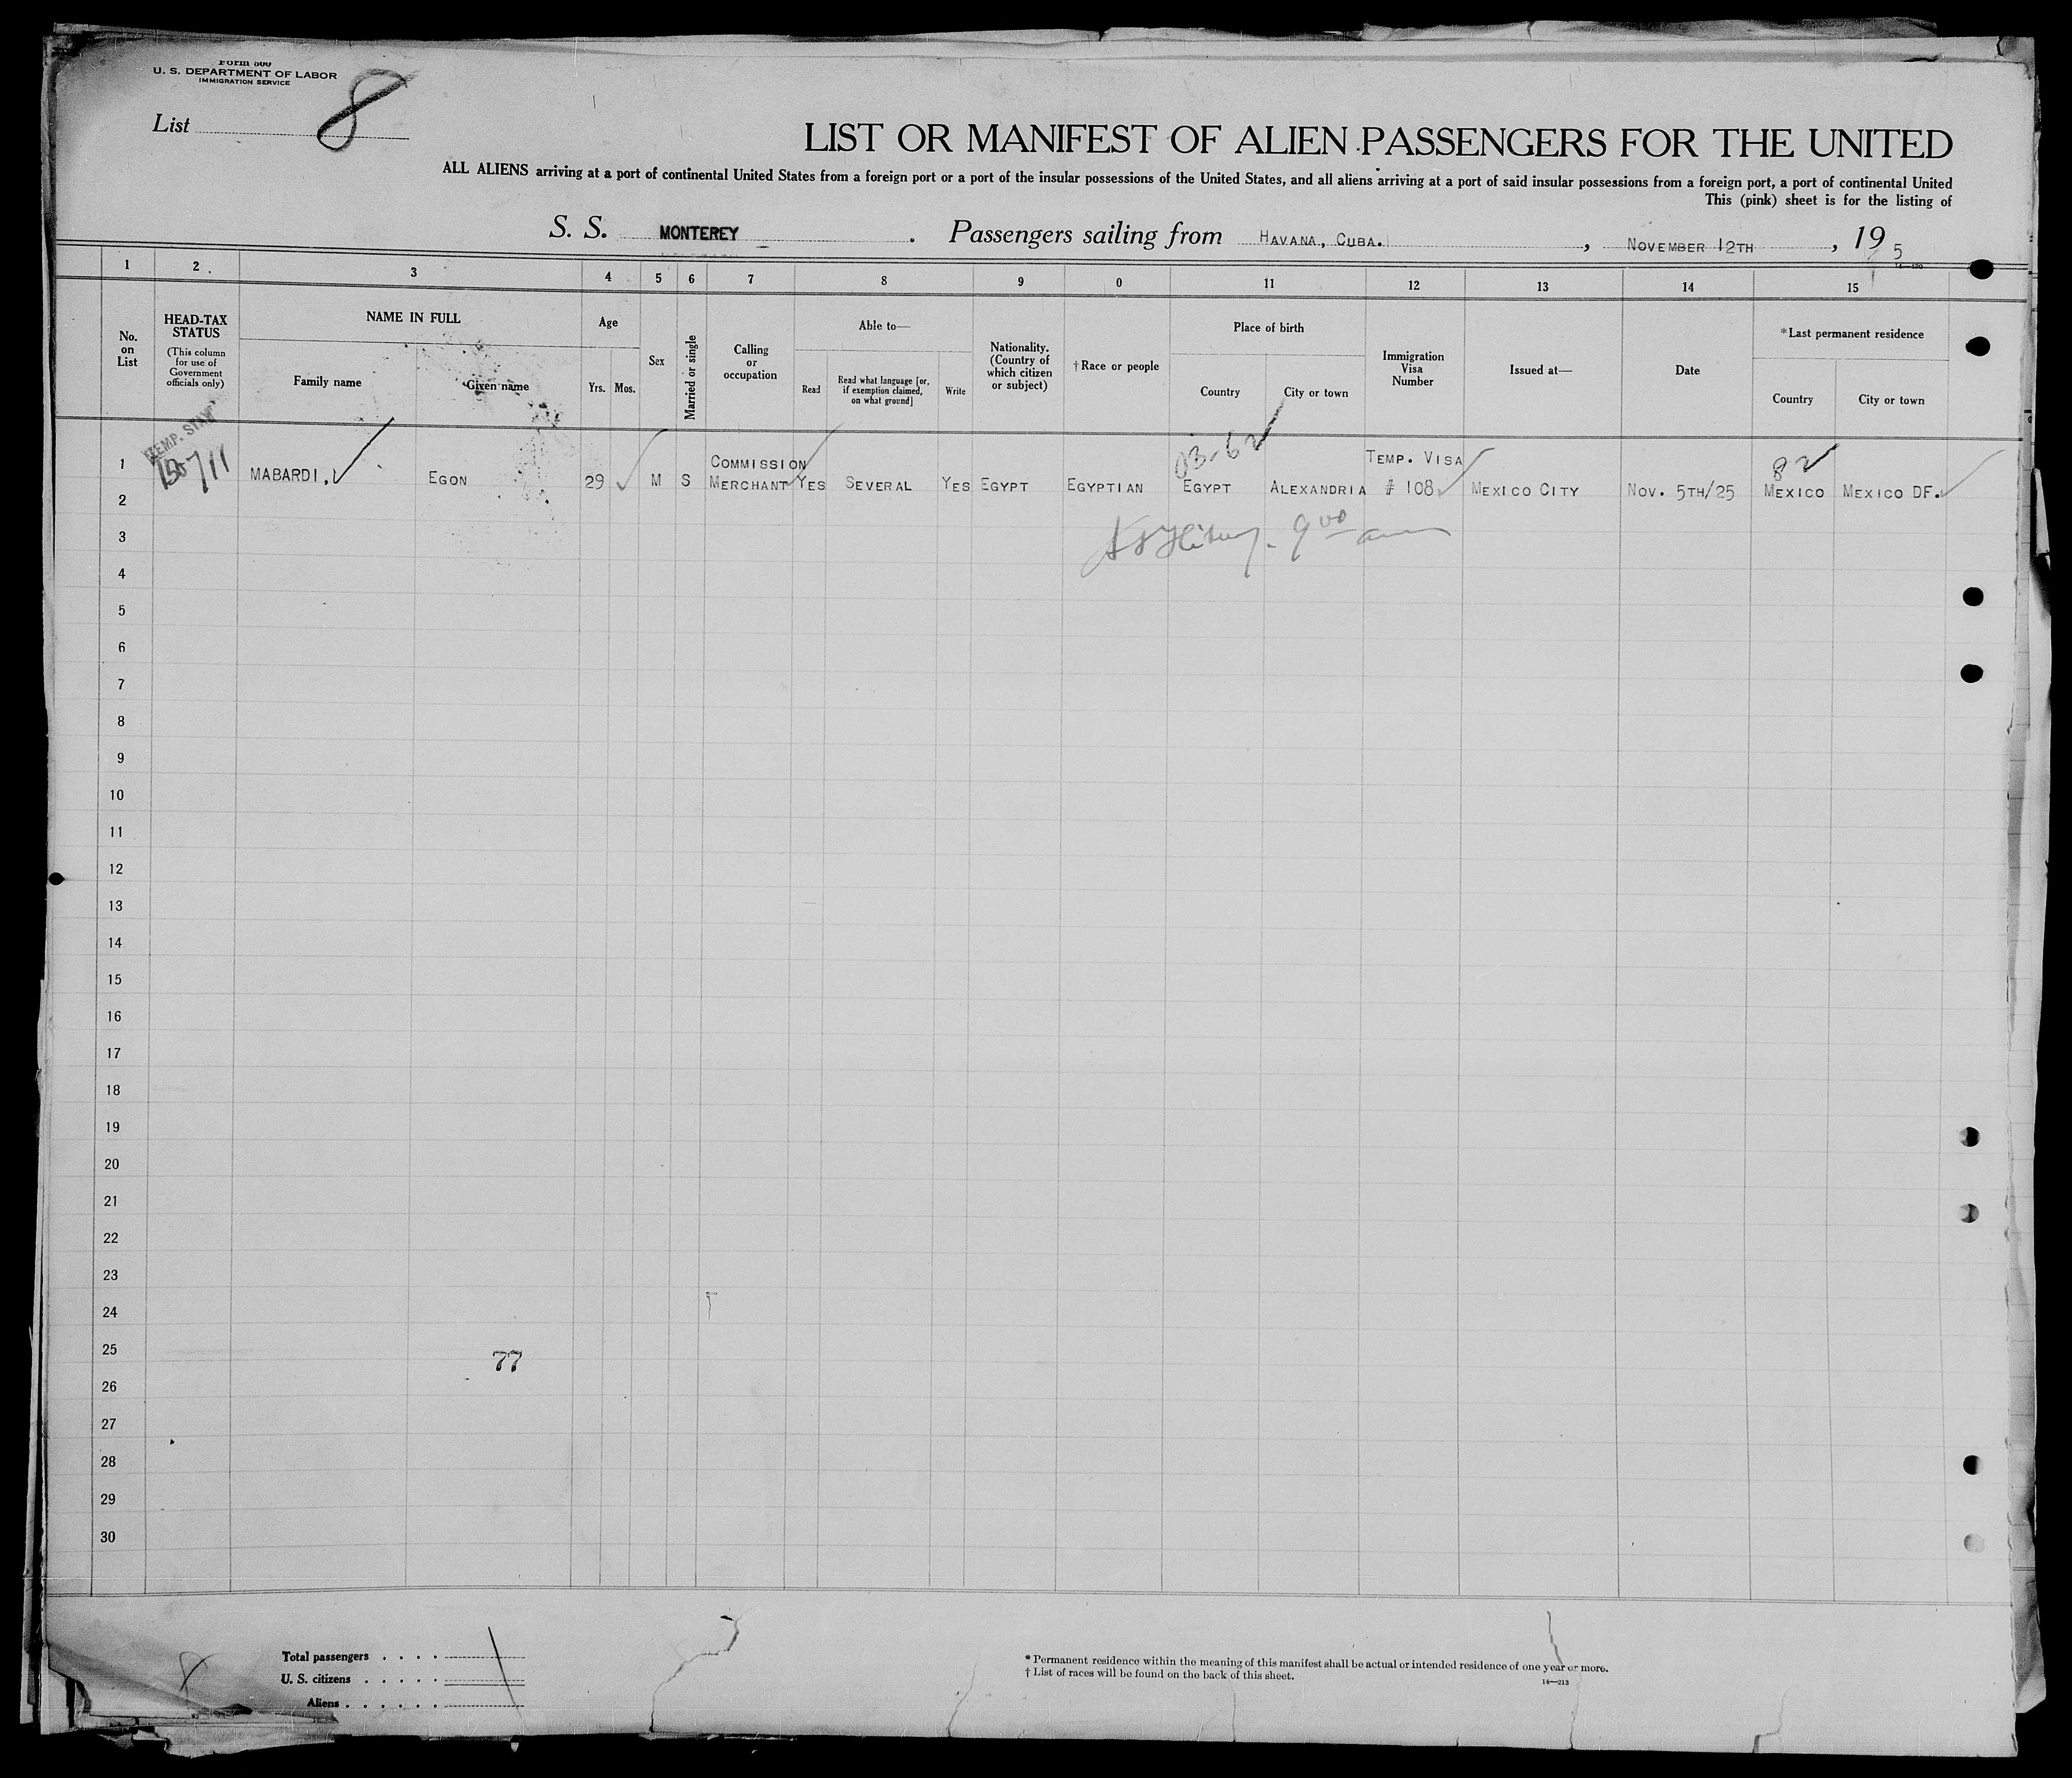 Form 500
U. S. DEPARTMENT OF LABOR
IMMIGRATION SERVICE
List 8
LIST OR MANIFEST OF ALIEN PASSENGERS FOR THE UNITED
ALL ALIENS arriving at a port of continental United States from a foreign port or a port of the insular possessions of the United States, and all aliens arriving at a port of said insular possessions from a foreign port, a port of continental United
This (pink) sheet is for the listing of
S. S. MONTEREY . Passengers sailing from HAVANA, CUBA. , NOVEMBER 12TH , 19 5
1 2 3 4 5 6 7 8 9 0 11 12 13 14 15
No. on List
HEAD-TAX STATUS
(This column for use of Government officials only)
NAME IN FULL
Family name
Given name
Age
Yrs. Mos.
Sex
Married or single
Calling or occupation
Able to—
Read
Read what language [or, if exemption claimed, on what ground]
Write
Nationality. (Country of which citizen or subject)
†Race or people
Place of birth
Country
City or town
Immigration Visa Number
Issued at—
Date
*Last permanent residence
Country
City or town
TEMP. STAY
03-62
82
1 MABARDI, EGON 29 M S COMMISSION MERCHANT YES SEVERAL YES EGYPT EGYPTIAN EGYPT ALEXANDRIA TEMP. VISA # 108 MEXICO CITY NOV. 5TH/25 MEXICO MEXICO DF.
2
3 9 00 am
4
5
6
7
8
9
10
11
12
13
14
15
16
17
18
19
20
21
22
23
24
25
77
26
27
28
29
30
Total passengers . . . .
U. S. citizens . . . . .
Aliens . . . . . .
* Permanent residence within the meaning of this manifest shall be actual or intended residence of one year or more.
† List of races will be found on the back of this sheet.
14—213